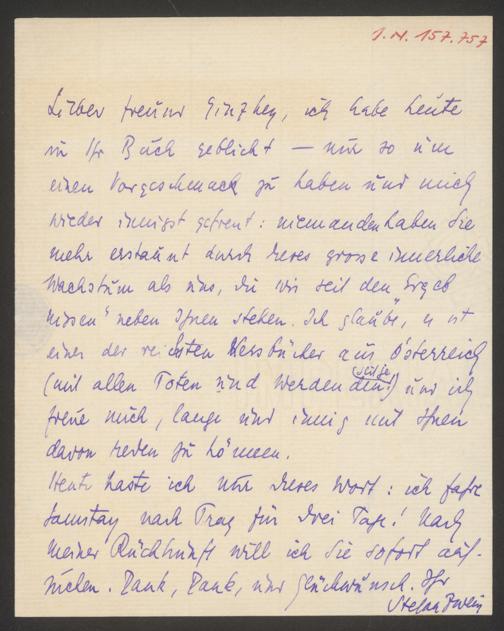 J. N. 157.757
Lieber Freund Ginzkey, ich habe heute
in Ihr Buch geblickt – nur so um
einen Vorgeschmack zu haben und mich
wieder innigst gefreut: niemanden haben Sie
mehr erstaunt durch dieses grosse innerliche
Wachstum als uns, die wir seit den „Ergeb
nissen" neben Ihnen stehen. Ich glaube, es ist
eines der reichsten Versbücher aus Österreich
(mit allen Toten und Werdenden!) und ich
freue mich, lange und innig mit Ihnen
davon reden zu können.
Heute haste ich nur dieses Wort: ich fahre
Samstag nach Prag für drei Tage! Nach
meiner Rückkunft will ich Sie sofort auf-
suchen. Dank, Dank, und Glückwunsch. Ihr
Stefan Zweig